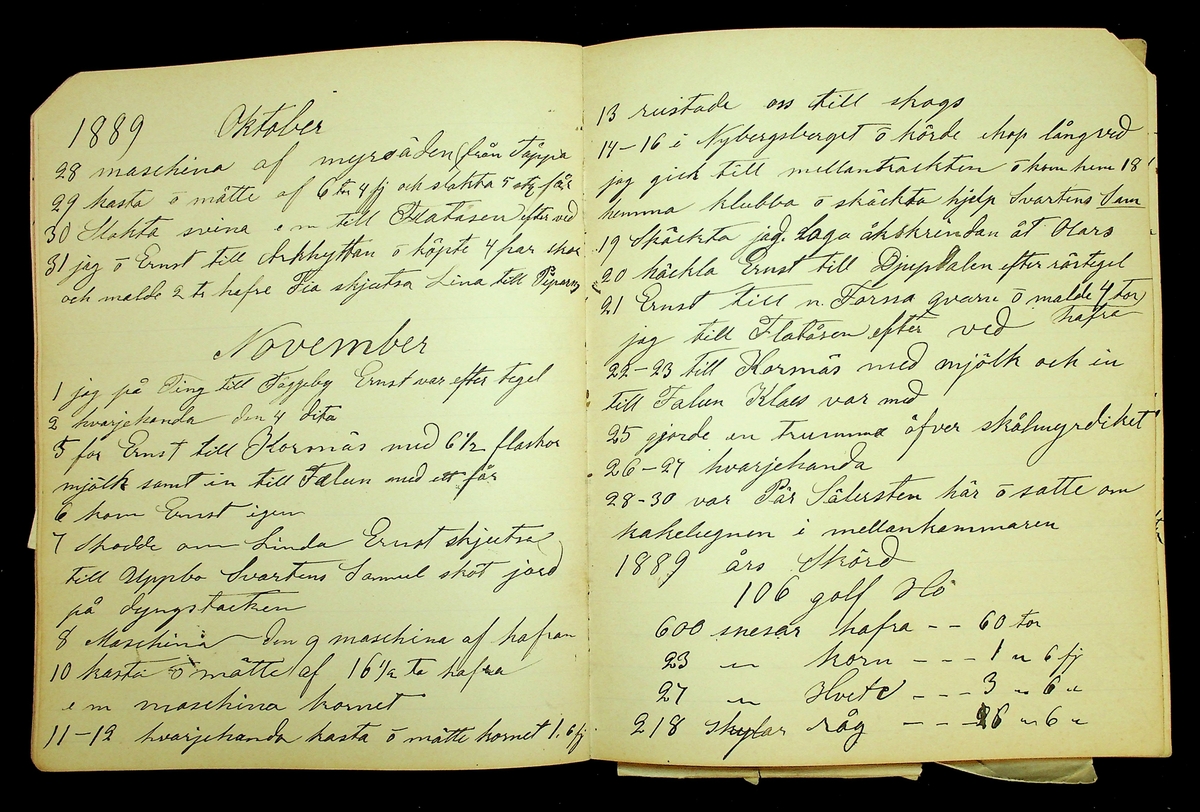 1889 Oktober
28 maschina af myrsäden (från Täppa
29 kasta ö mätte af 6 tr 4 fj och slakta 5 st får
30 Slakta svina e m till Flatåsen efter ved
31 jag ö Ernst till Arkhyttan ö köpte 4 par skor
och malde 2 tr hafre Fia skjutsa Lina till
November
1 jag på Ting till Fäggeby Ernst var efter tegel
2 hvarjehanda den 4 dito
5 for Ernst till Kornäs med 6 1/2 flaskor
mjölk samt in till Falun med ett får
6 kom Ernst igen
7 Skodde om Linda Ernst skjutsa
till Uppbo Svartens Samuel sköt jord
på dyngstacken
8 Maschina den 9 maschina af hafran
10 kasta ö mätte af 16 1/2 tr hafra
e m maschina kornet
11-12 hvarjehanda kasta ö mätte kornet 1.6 fj
13 rustade oss till skogs
14-16 i Nybergsberget ö körde ihop långved
jag gick till mellantrackten ö kom hem 18
hemma klubba ö skäckta hjelp Svartens Sam
19 Skäckta jag laga åkskrindan åt Olars
20 häckla Ernst till Djupdalen efter rörtegel
21 Ernst till n. Forssa qvarn ö malde 4 tor
hafra
jag till Flatåsen efter ved
22-23 till Kornäs med mjölk och in
till Falun Klaes var med
25 gjorde en trumma öfver skålmyrdiket
26-27 hvarjehanda
28-30 var Pär Sälersten här ö satte om
kakelugnen i mellankammaren
1889 års Skörd
106 golf Hö
600 snesar hafra -- 60 tor
23 " korn --- 1 " 6 fj
27 " Hvete --- 3 " 6 "
218 skylar råg --- 26 " 6 "